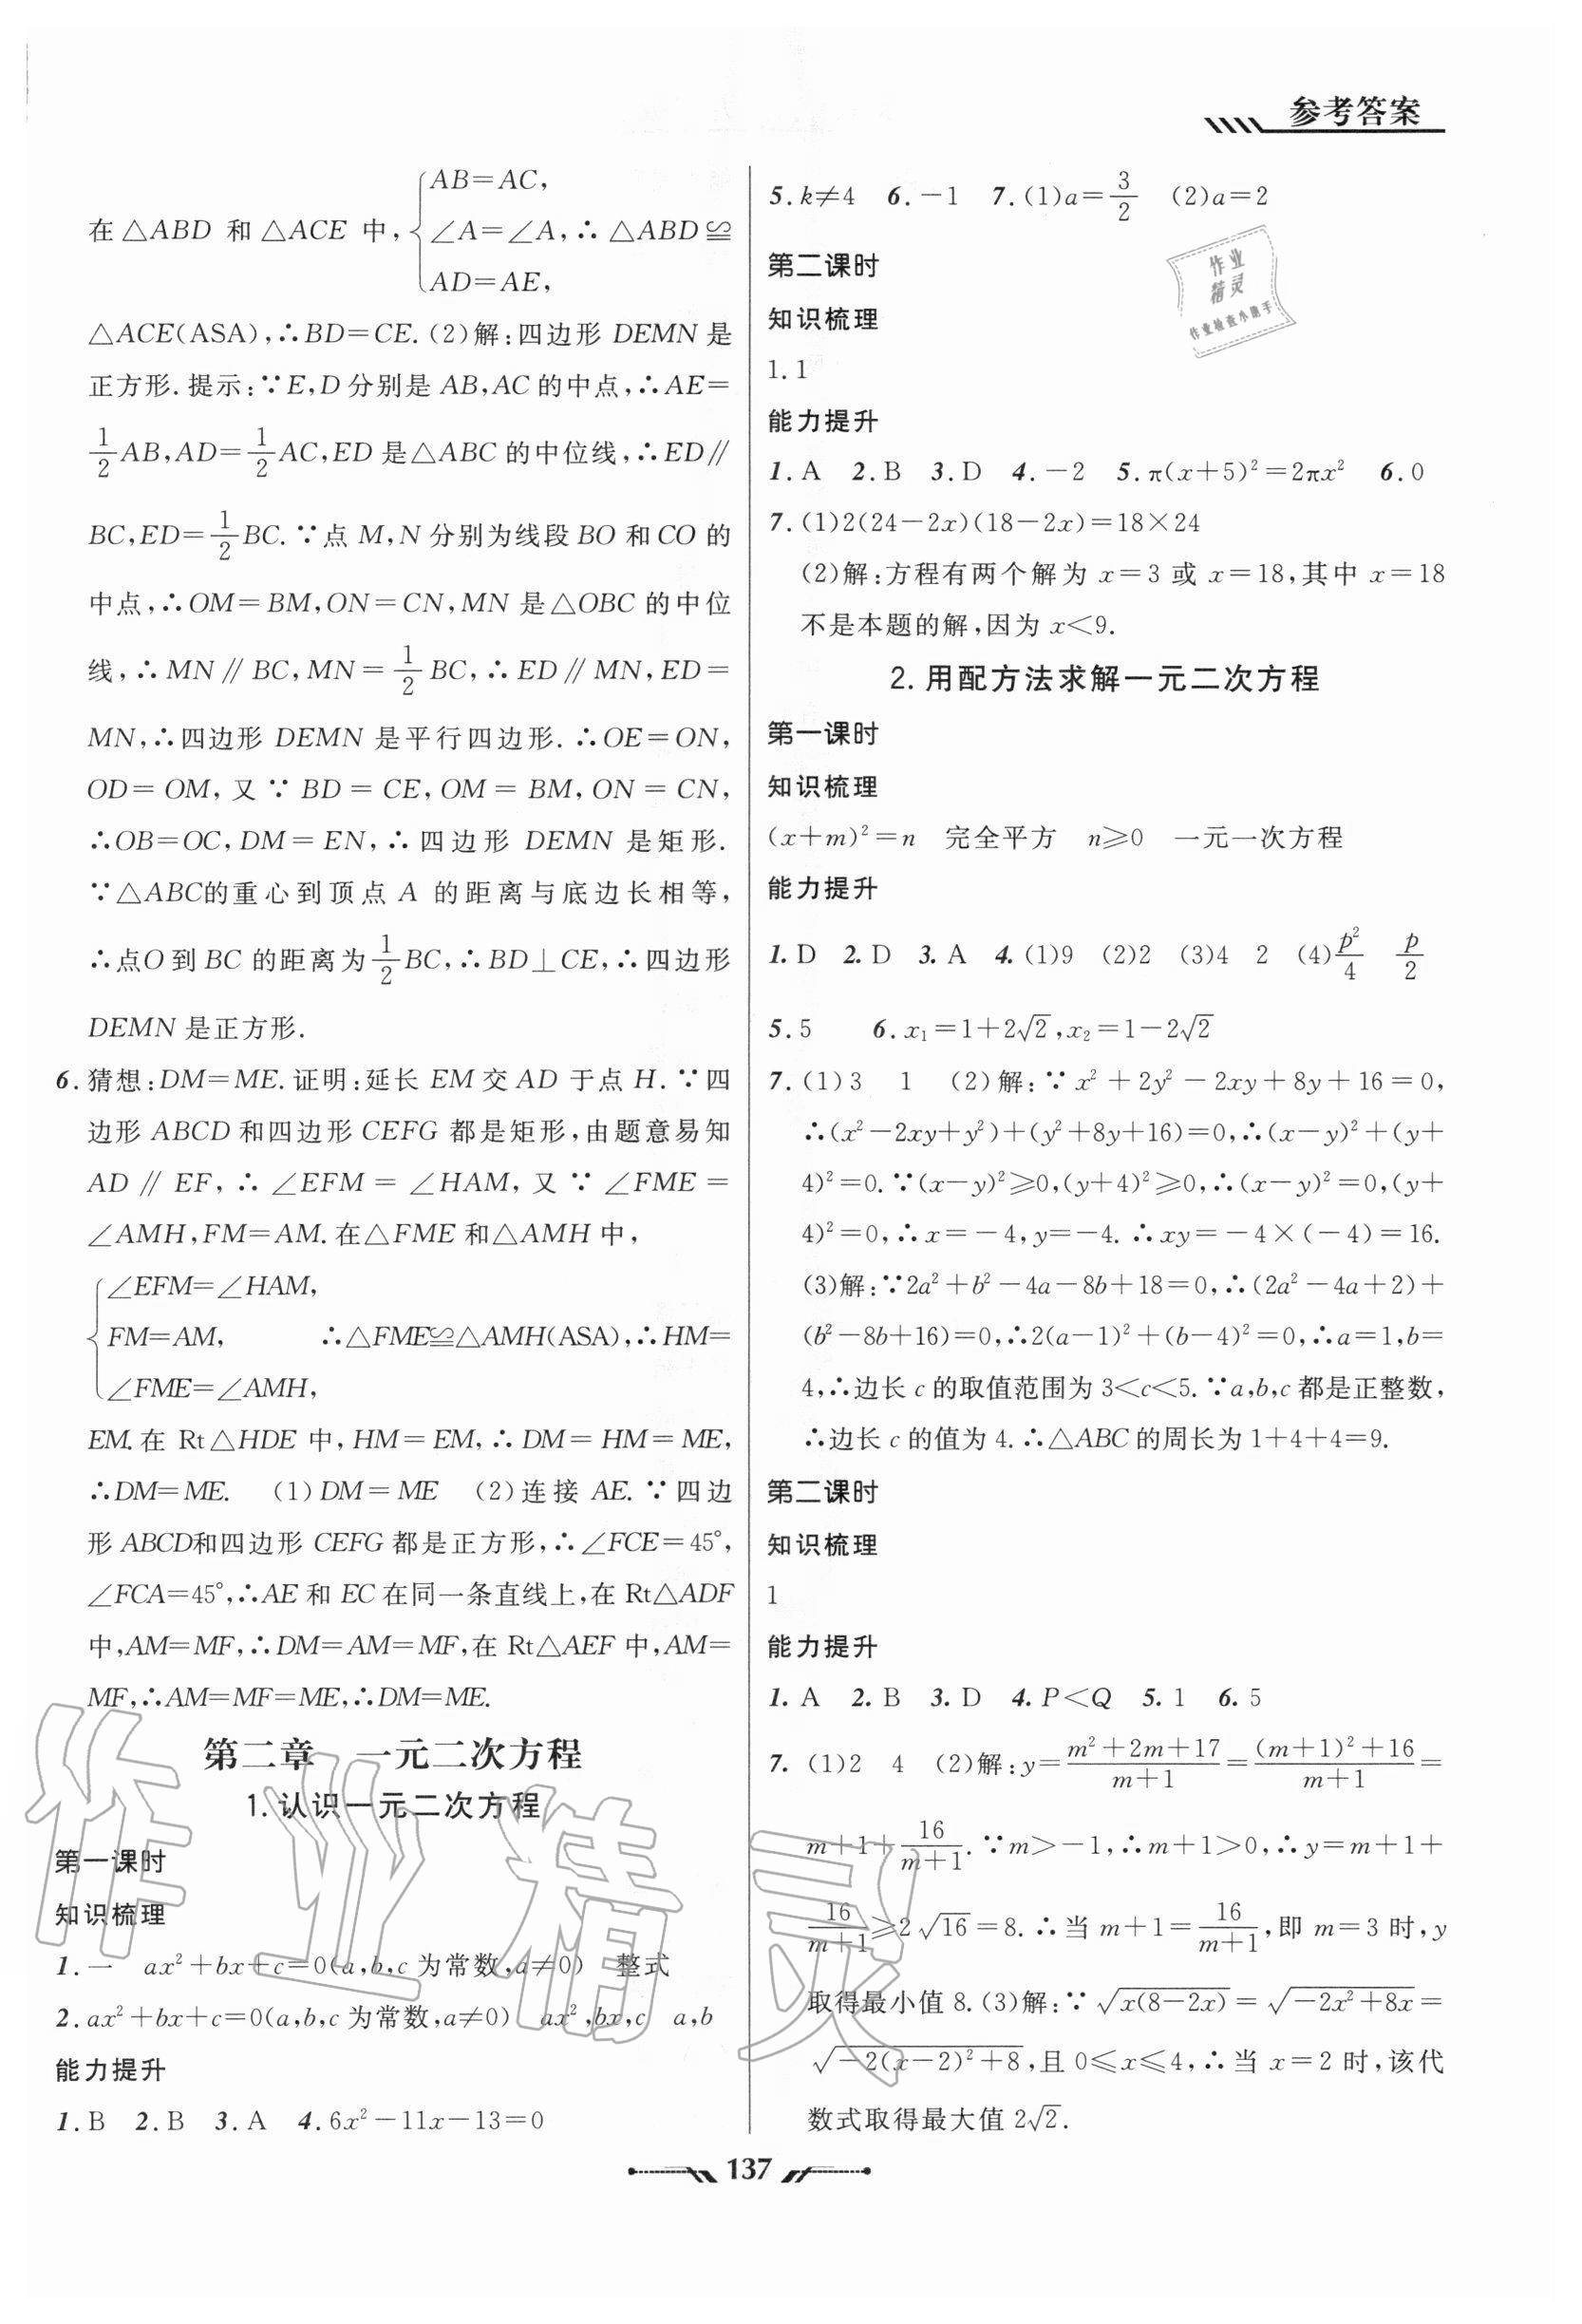 参考答案
AB=AC,
在△ABD 和△ACE 中,{∠A=∠A,∴△ABD≌
AD=AE,
△ACE(ASA),∴BD=CE.(2)解:四边形 DEMN 是
正方形.提示:∵E,D分别是 AB,AC的中点,∴AE=
1/2 AB,AD=1/2 AC,ED是△ABC的中位线,∴ED∥
BC,ED=1/2 BC.∵点 M,N分别为线段BO 和CO 的
中点,∴OM=BM,ON=CN,MN 是△OBC的中位
线,∴MN∥BC,MN=1/2 BC,∴ED∥MN,ED=
MN,∴四边形 DEMN 是平行四边形.∴OE=ON,
OD=OM,又∵BD=CE,OM=BM,ON=CN,
∴OB=OC,DM=EN,∴四边形 DEMN 是矩形.
∵△ABC的重心到顶点 A 的距离与底边长相等,
∴点O到BC的距离为1/2 BC,∴BD⊥CE,∴四边形
DEMN是正方形.
6.猜想:DM=ME.证明:延长 EM 交 AD 于点 H.∵四
边形 ABCD和四边形CEFG 都是矩形,由题意易知
AD∥EF,∴∠EFM=∠HAM,又∵∠FME=
∠AMH,FM=AM.在△FME和△AMH中,
∠EFM=∠HAM,
{FM=AM, ∴△FME≌△AMH(ASA),∴HM=
∠FME=∠AMH,
EM.在 Rt△HDE 中,HM=EM,∴DM=HM=ME,
∴DM=ME. (1)DM=ME (2)连接 AE.∵四边
形 ABCD和四边形 CEFG 都是正方形,∴∠FCE=45°,
∠FCA=45°,∴AE和EC在同一条直线上,在Rt△ADF
中,AM=MF,∴DM=AM=MF,在Rt△AEF中,AM=
MF,∴AM=MF=ME,∴DM=ME.
第二章 一元二次方程
1.认识一元二次方程
第一课时
知识梳理
1.一 ax²+bx+c=0(a,b,c为常数,a≠0) 整式
2.ax²+bx+c=0(a,b,c为常数,a≠0) ax²,bx,c a,b
能力提升
1.B 2.B 3.A 4.6x²-11x-13=0
5.k≠4 6.-1 7.(1)a=3/2 (2)a=2
第二课时
知识梳理
1.1
能力提升
1.A 2.B 3.D 4.-2 5.π(x+5)²=2πx² 6.0
7.(1)2(24-2x)(18-2x)=18×24
(2)解:方程有两个解为 x=3 或 x=18,其中 x=18
不是本题的解,因为 x<9.
2.用配方法求解一元二次方程
第一课时
知识梳理
(x+m)²=n 完全平方 n≥0 一元一次方程
能力提升
1.D 2.D 3.A 4.(1)9 (2)2 (3)4 2 (4)p²/4 p/2
5.5 6.x₁=1+2√2,x₂=1-2√2
7.(1)3 1 (2)解:∵x²+2y²-2xy+8y+16=0,
∴(x²-2xy+y²)+(y²+8y+16)=0,∴(x-y)²+(y+
4)²=0.∵(x-y)²≥0,(y+4)²≥0,∴(x-y)²=0,(y+
4)²=0,∴x=-4,y=-4.∴xy=-4×(-4)=16.
(3)解:∵2a²+b²-4a-8b+18=0,∴(2a²-4a+2)+
(b²-8b+16)=0,∴2(a-1)²+(b-4)²=0,∴a=1,b=
4,∴边长c的取值范围为3<c<5.∵a,b,c都是正整数,
∴边长c的值为4.∴△ABC的周长为1+4+4=9.
第二课时
知识梳理
1
能力提升
1.A 2.B 3.D 4.P<Q 5.1 6.5
7.(1)2 4 (2)解:y=(m²+2m+17)/(m+1)=((m+1)²+16)/(m+1)=
m+1+16/(m+1).∵m>-1,∴m+1>0,∴y=m+1+
16/(m+1)≥2√16=8.∴当 m+1=16/(m+1),即 m=3 时,y
取得最小值8.(3)解:∵√(x(8-2x))=√(-2x²+8x)=
√(-2(x-2)²+8),且 0≤x≤4,∴当 x=2 时,该代
数式取得最大值2√2.
137
作业
精灵
作业检查小助手
作业精灵